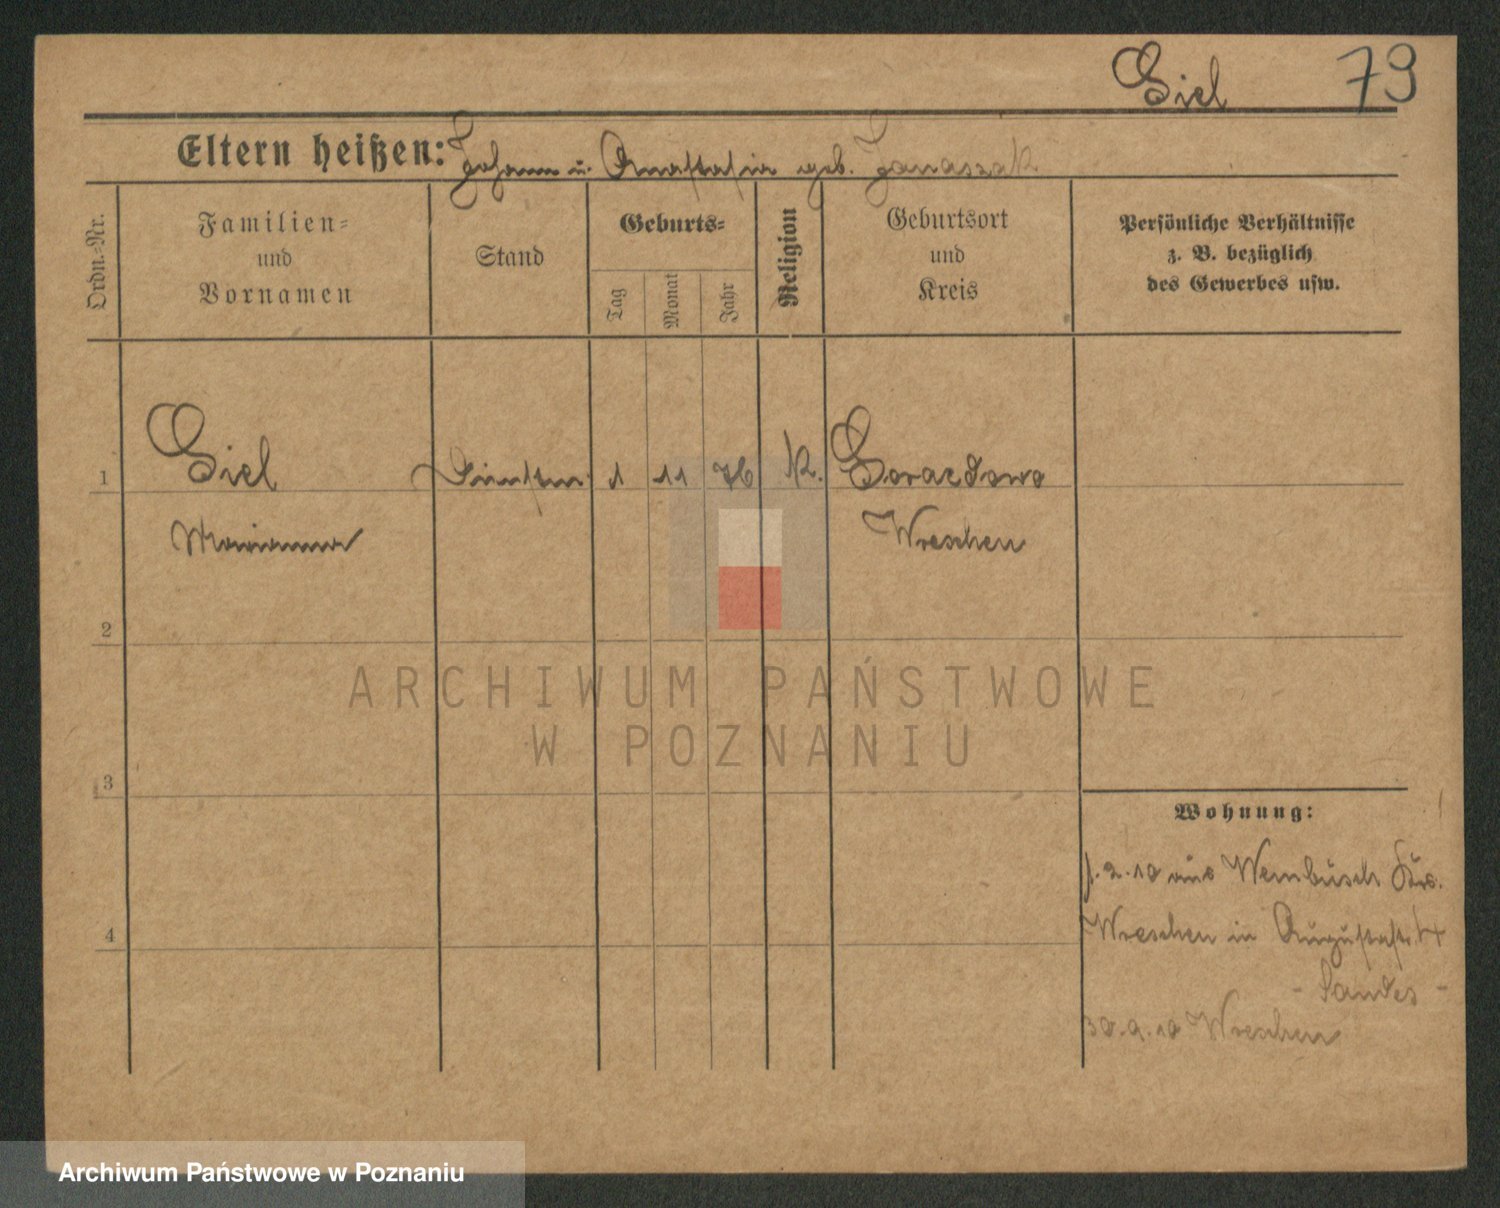 Siel 79
Eltern heißen: Johann u. Anastasia geb. Janaszak
Ordn.-Nr.
Familien-
und
Vornamen
Stand
Geburts-
Tag
Monat
Jahr
Religion
Geburtsort
und
Kreis
Persönliche Verhältnisse
z. B. bezüglich
des Gewerbes usw.
1 Siel 1 11 76 K. Gorazdowo
Marianna Wreschen
2
3
4
Wohnung:
1.2.10 aus Weinbusch Krs.
Wreschen in Augustastr. 4
- Sandes -
30.9.10 Wreschen
ARCHIWUM PAŃSTWOWE
W POZNANIU
Archiwum Państwowe w Poznaniu